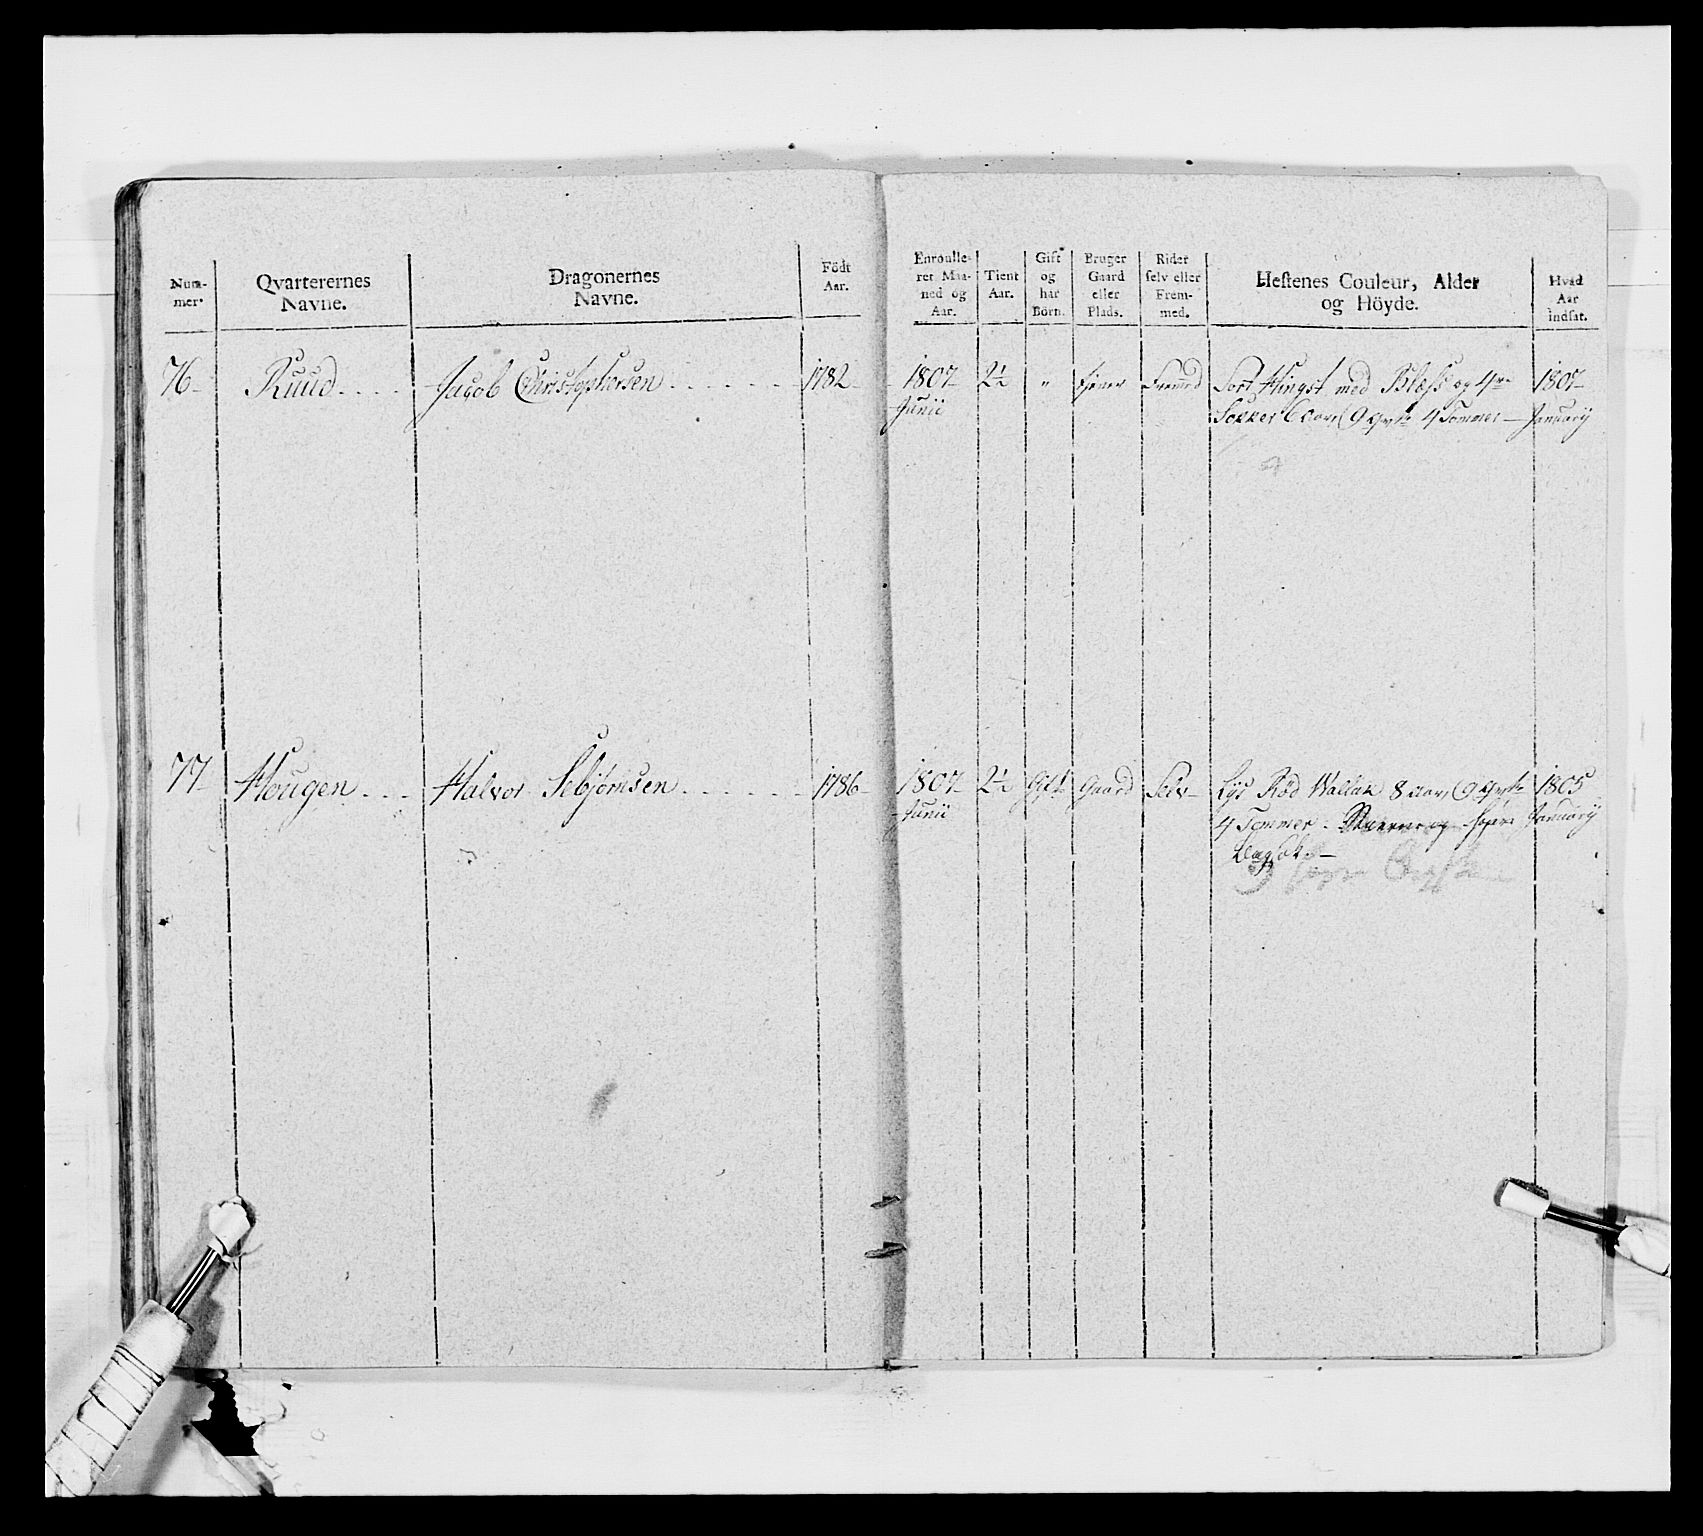 Num-
mer.
Qvarterernes
Navne.
Dragonernes
Navne.
Födt
Aar.
Enroulle-
ret Maa-
ned og
Aar.
Tient
Aar.
Gift
og
har
Börn.
Bruger
Gaard
eller
Plads.
Rider
selv eller
Frem-
med.
Hestenes Couleur, Alder
og Höyde.
Hvad
Aar
indsat.
76 Ruud Jacob Christophersen 1782 1807 2½ " tjener Fremd Sort Hingst med Blæss og 4re 1807
Junii Sokker 6 aar, 9 qvrtr 4 Tommer Januarij
77 Hougen Halvor Sebjørnsen 1786 1807 2½ Gift Gaard Selv Lys Rød Wallak 8 aar, 9 qvrtr 1805
Junii 4 Tommer Januarij